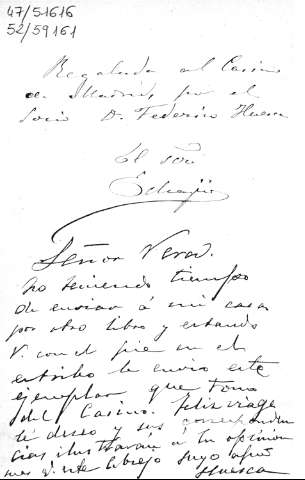 47/51616
52/59161
Regalado al Casino
de Madrid, por el
Socio D. Federico Huesca
El
Echagüe
Señor Vera.
no teniendo tiempo
de enviar á mi casa
por otro libro y estando
V. con el pie en el
estribo le envio este
ejemplar que tomo
del Casino. Feliz viage
te deseo y sus corresponden
cias ilustrarán á tu opinion
suyo afmo
Huesca